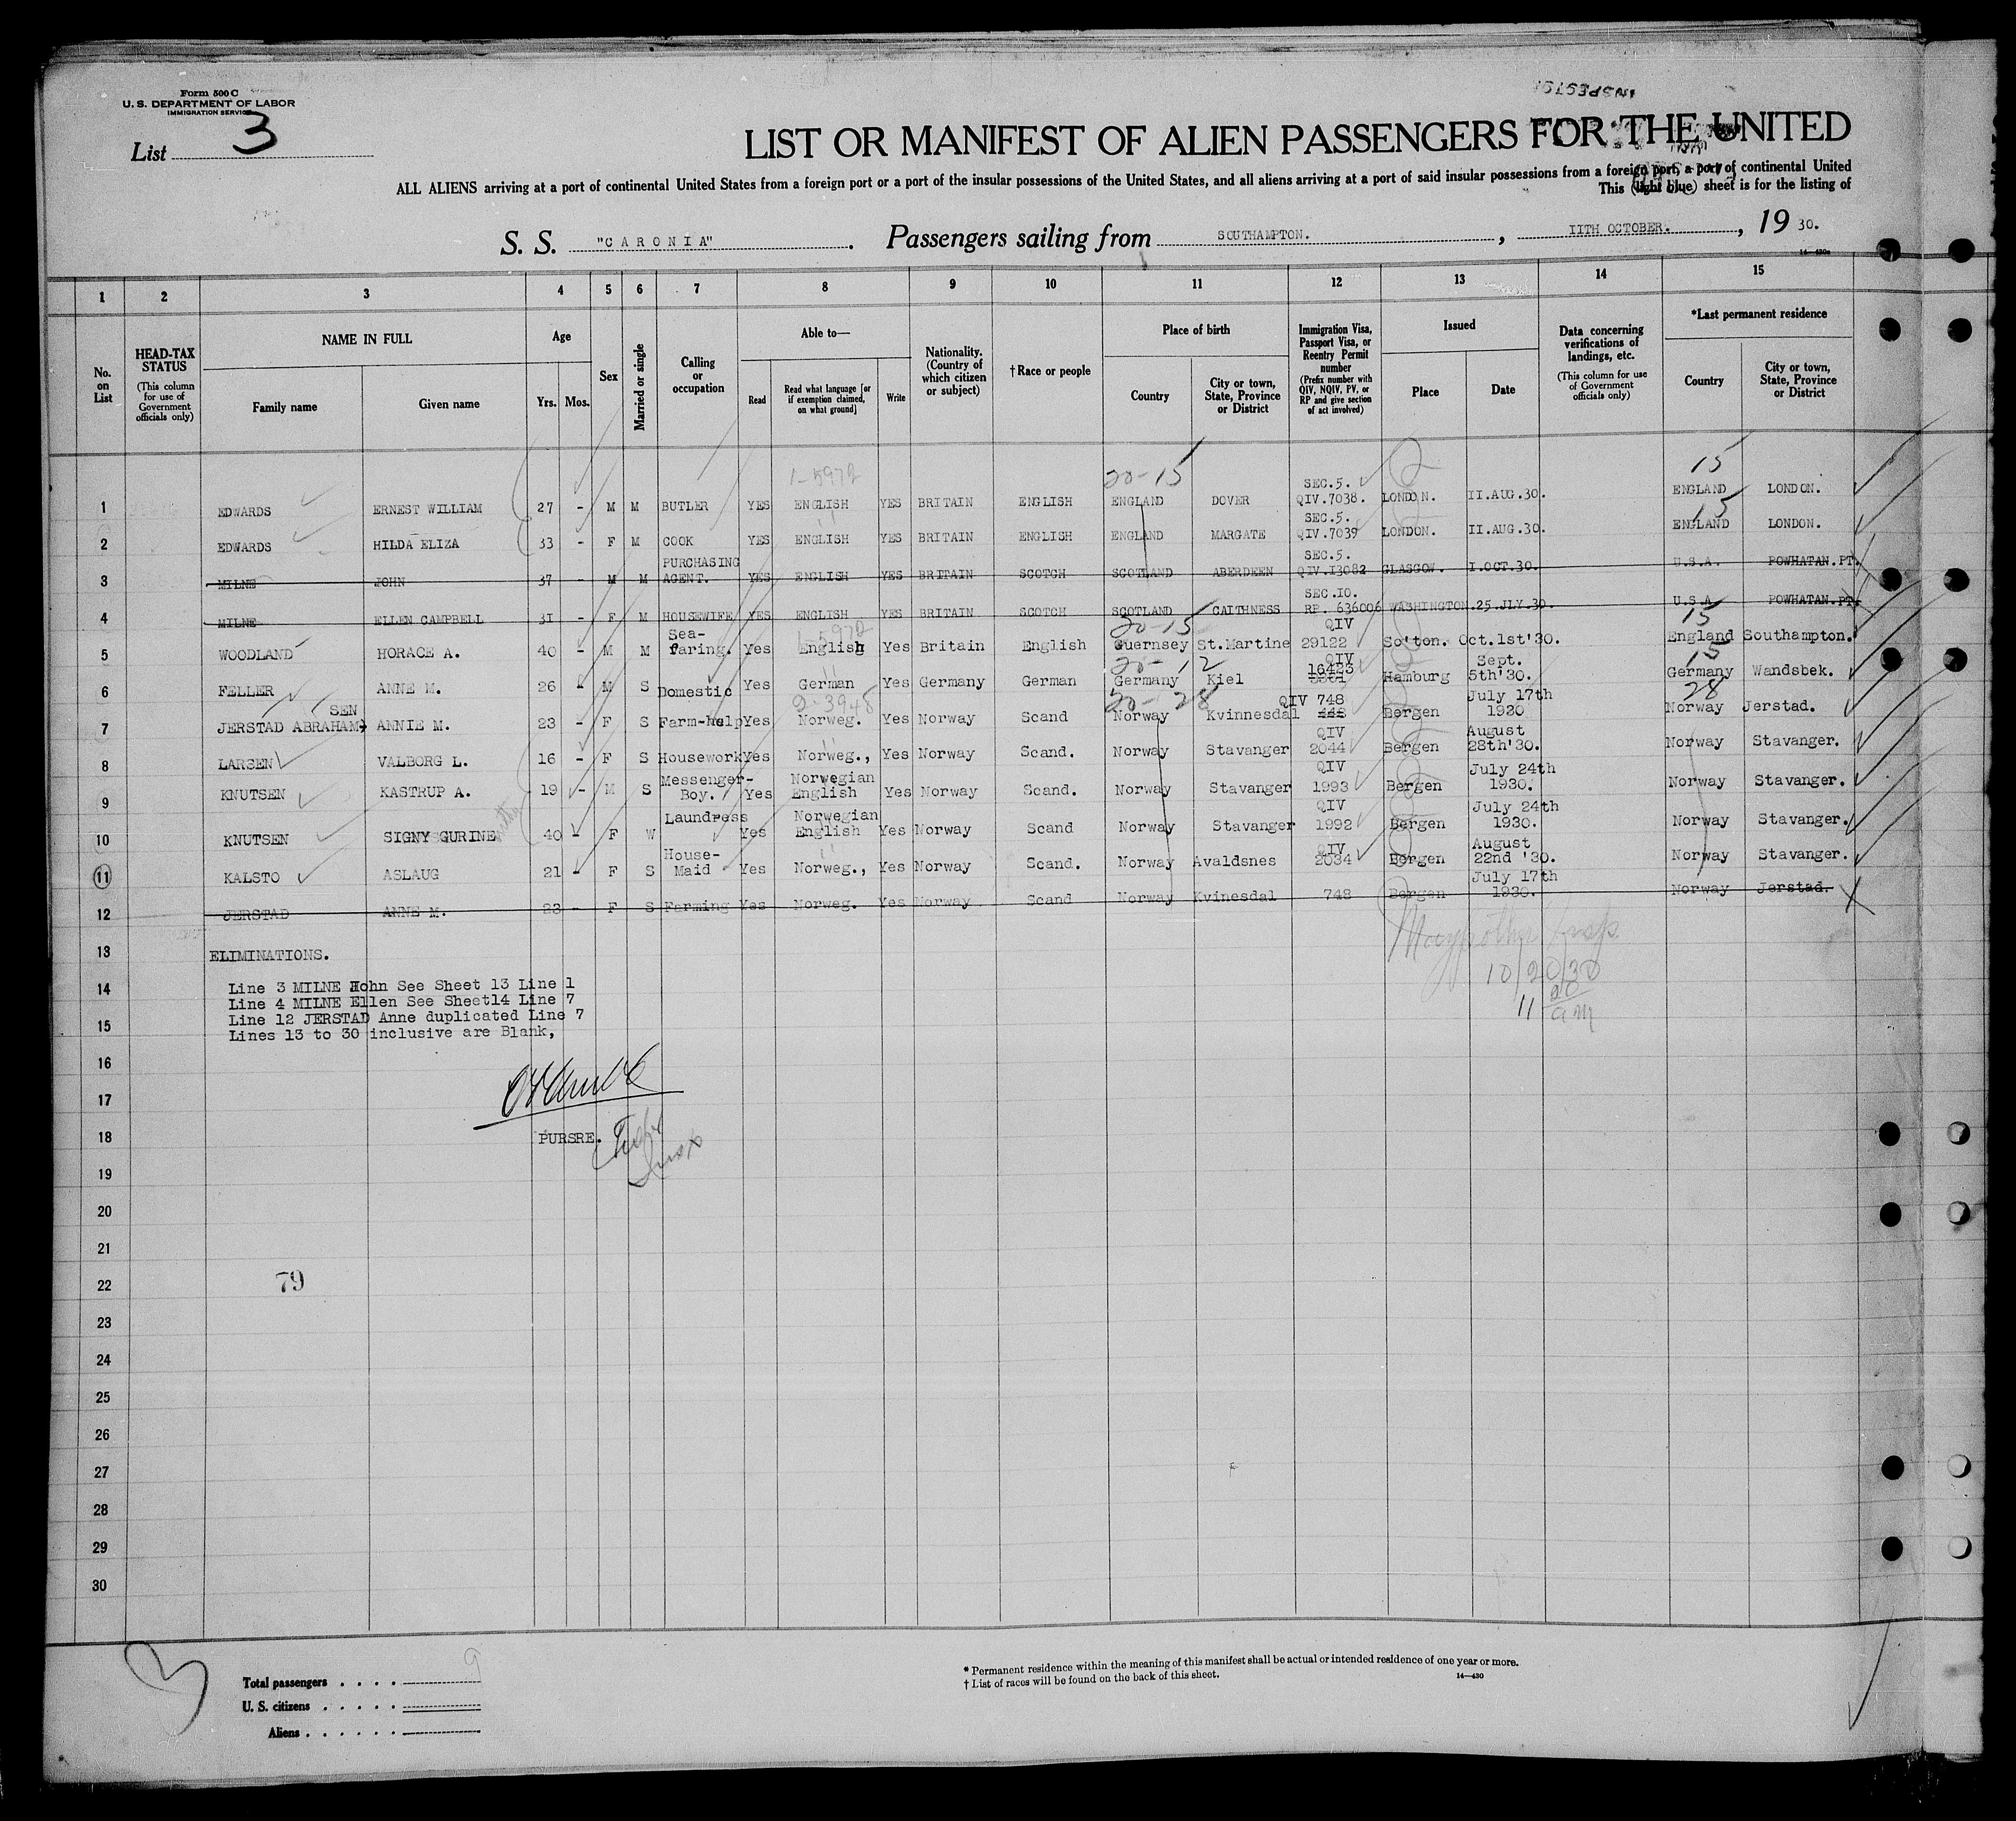 Form 500 C
U. S. DEPARTMENT OF LABOR
IMMIGRATION SERVICE
List 3
LIST OR MANIFEST OF ALIEN PASSENGERS FOR THE UNITED
ALL ALIENS arriving at a port of continental United States from a foreign port or a port of the insular possessions of the United States, and all aliens arriving at a port of said insular possessions from a foreign port, a port of continental United
This (light blue) sheet is for the listing of
S. S. "CARONIA". Passengers sailing from SOUTHAMPTON. , IITH OCTOBER. , 19 30.
14-430a
1 2 3 4 5 6 7 8 9 10 11 12 13 14 15
No. on List
HEAD-TAX STATUS (This column for use of Government officials only)
NAME IN FULL
Family name
Given name
Age
Yrs. Mos.
Sex
Married or single
Calling or occupation
Able to—
Read
Read what language [or if exemption claimed, on what ground]
Write
Nationality. (Country of which citizen or subject)
†Race or people
Place of birth
Country
City or town, State, Province or District
Immigration Visa, Passport Visa, or Reentry Permit number (Prefix number with QIV, NQIV, PV, or RP and give section of act involved)
Issued
Place
Date
Data concerning verifications of landings, etc. (This column for use of Government officials only)
*Last permanent residence
Country
City or town, State, Province or District
1-5972 20-15 15
1 EDWARDS ERNEST WILLIAM 27 - M M BUTLER YES ENGLISH YES BRITAIN ENGLISH ENGLAND DOVER SEC.5. QIV.7038. LONDON. II.AUG.30. ENGLAND LONDON.
15
2 EDWARDS HILDA ELIZA 33 - F M COOK YES ENGLISH YES BRITAIN ENGLISH ENGLAND MARGATE SEC.5. QIV.7039 LONDON. II.AUG.30. ENGLAND LONDON.
3 MILNE JOHN 37 - M M PURCHASING AGENT. YES ENGLISH YES BRITAIN SCOTCH SCOTLAND ABERDEEN SEC.5. QIV.I3082 GLASGOW. I.OCT.30. U.S.A. POWHATAN.PT.
4 MILNE ELLEN CAMPBELL 3I - F M HOUSEWIFE YES ENGLISH YES BRITAIN SCOTCH SCOTLAND CAITHNESS SEC.IO. RP. 636006 WASHINGTON.25.JLY.30. U.S.A. POWHATAN.PT.
1-5972 20-15 15
5 WOODLAND HORACE A. 40 - M M Sea-faring. Yes English Yes Britain English Guernsey St.Martine QIV 29122 So'ton. Oct.1st'30. England Southampton.
20-12 15
6 FELLER ANNE M. 26 - M S Domestic Yes German Yes Germany German Germany Kiel QIV 16423 Hamburg Sept. 5th'30. Germany Wandsbek.
2-3948 20-28 28
7 JERSTAD ABRAHAM SEN ANNIE M. 23 - F S Farm-help Yes Norweg. Yes Norway Scand Norway Kvinnesdal QIV 748 Bergen July 17th 1920 Norway Jerstad.
8 LARSEN VALBORG L. 16 - F S Housework Yes Norweg., Yes Norway Scand. Norway Stavanger QIV 2044 Bergen August 28th'30. Norway Stavanger.
9 KNUTSEN KASTRUP A. 19 - M S Messenger-Boy. Yes Norwegian English Yes Norway Scand. Norway Stavanger QIV 1993 Bergen July 24th 1930. Norway Stavanger.
10 KNUTSEN SIGNY GURINE 40 - F W Laundress Yes Norwegian English Yes Norway Scand Norway Stavanger QIV 1992 Bergen July 24th 1930. Norway Stavanger.
11 KALSTO ASLAUG 21 - F S House-Maid Yes Norweg., Yes Norway Scand. Norway Avaldsnes QIV 2034 Bergen August 22nd '30. Norway Stavanger.
12 JERSTAD ANNE M. 23 - F S Farming Yes Norweg. Yes Norway Scand Norway Kvinesdal 748 Bergen July 17th 1930. Norway Jerstad.
13 ELIMINATIONS.
10/20/30
11 20 am
14 Line 3 MILNE John See Sheet 13 Line 1
Line 4 MILNE Ellen See Sheet14 Line 7
15 Line 12 JERSTAD Anne duplicated Line 7
Lines 13 to 30 inclusive are Blank,
16
17
18 PURSRE.
19
20
21
22 79
23
24
25
26
27
28
29
30
3
Total passengers . . . . 9
U. S. citizens . . . . .
Aliens . . . . . .
* Permanent residence within the meaning of this manifest shall be actual or intended residence of one year or more.
† List of races will be found on the back of this sheet.
14—430